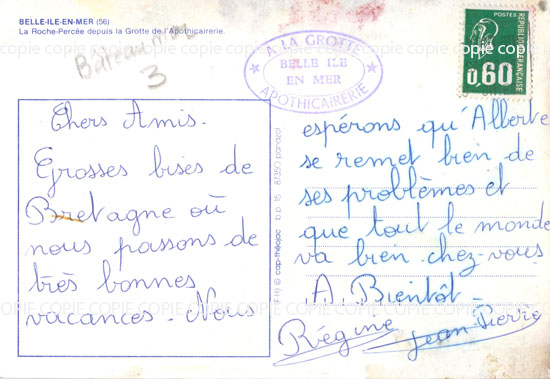 BELLE-ILE-EN-MER (56)
La Roche-Percée depuis la Grotte de l'Apothicairerie.
Bateau
3
★ A LA GROTTE ★
BELLE ILE
EN MER
APOTHICAIRERIE
POSTES
RÉPUBLIQUE FRANÇAISE
0,60
Chers Amis.
Grosses bises de
Bretagne où
nous passons de
très bonnes
vacances. Nous
cap-théojac b.p. 15 87350 panazol
espérons qu'Albert
se remet bien de
ses problèmes et
que tout le monde
va bien chez-vous
A. Bientôt
Régine Jean Pierre
COPIE COPIE COPIE COPIE COPIE COPIE COPIE